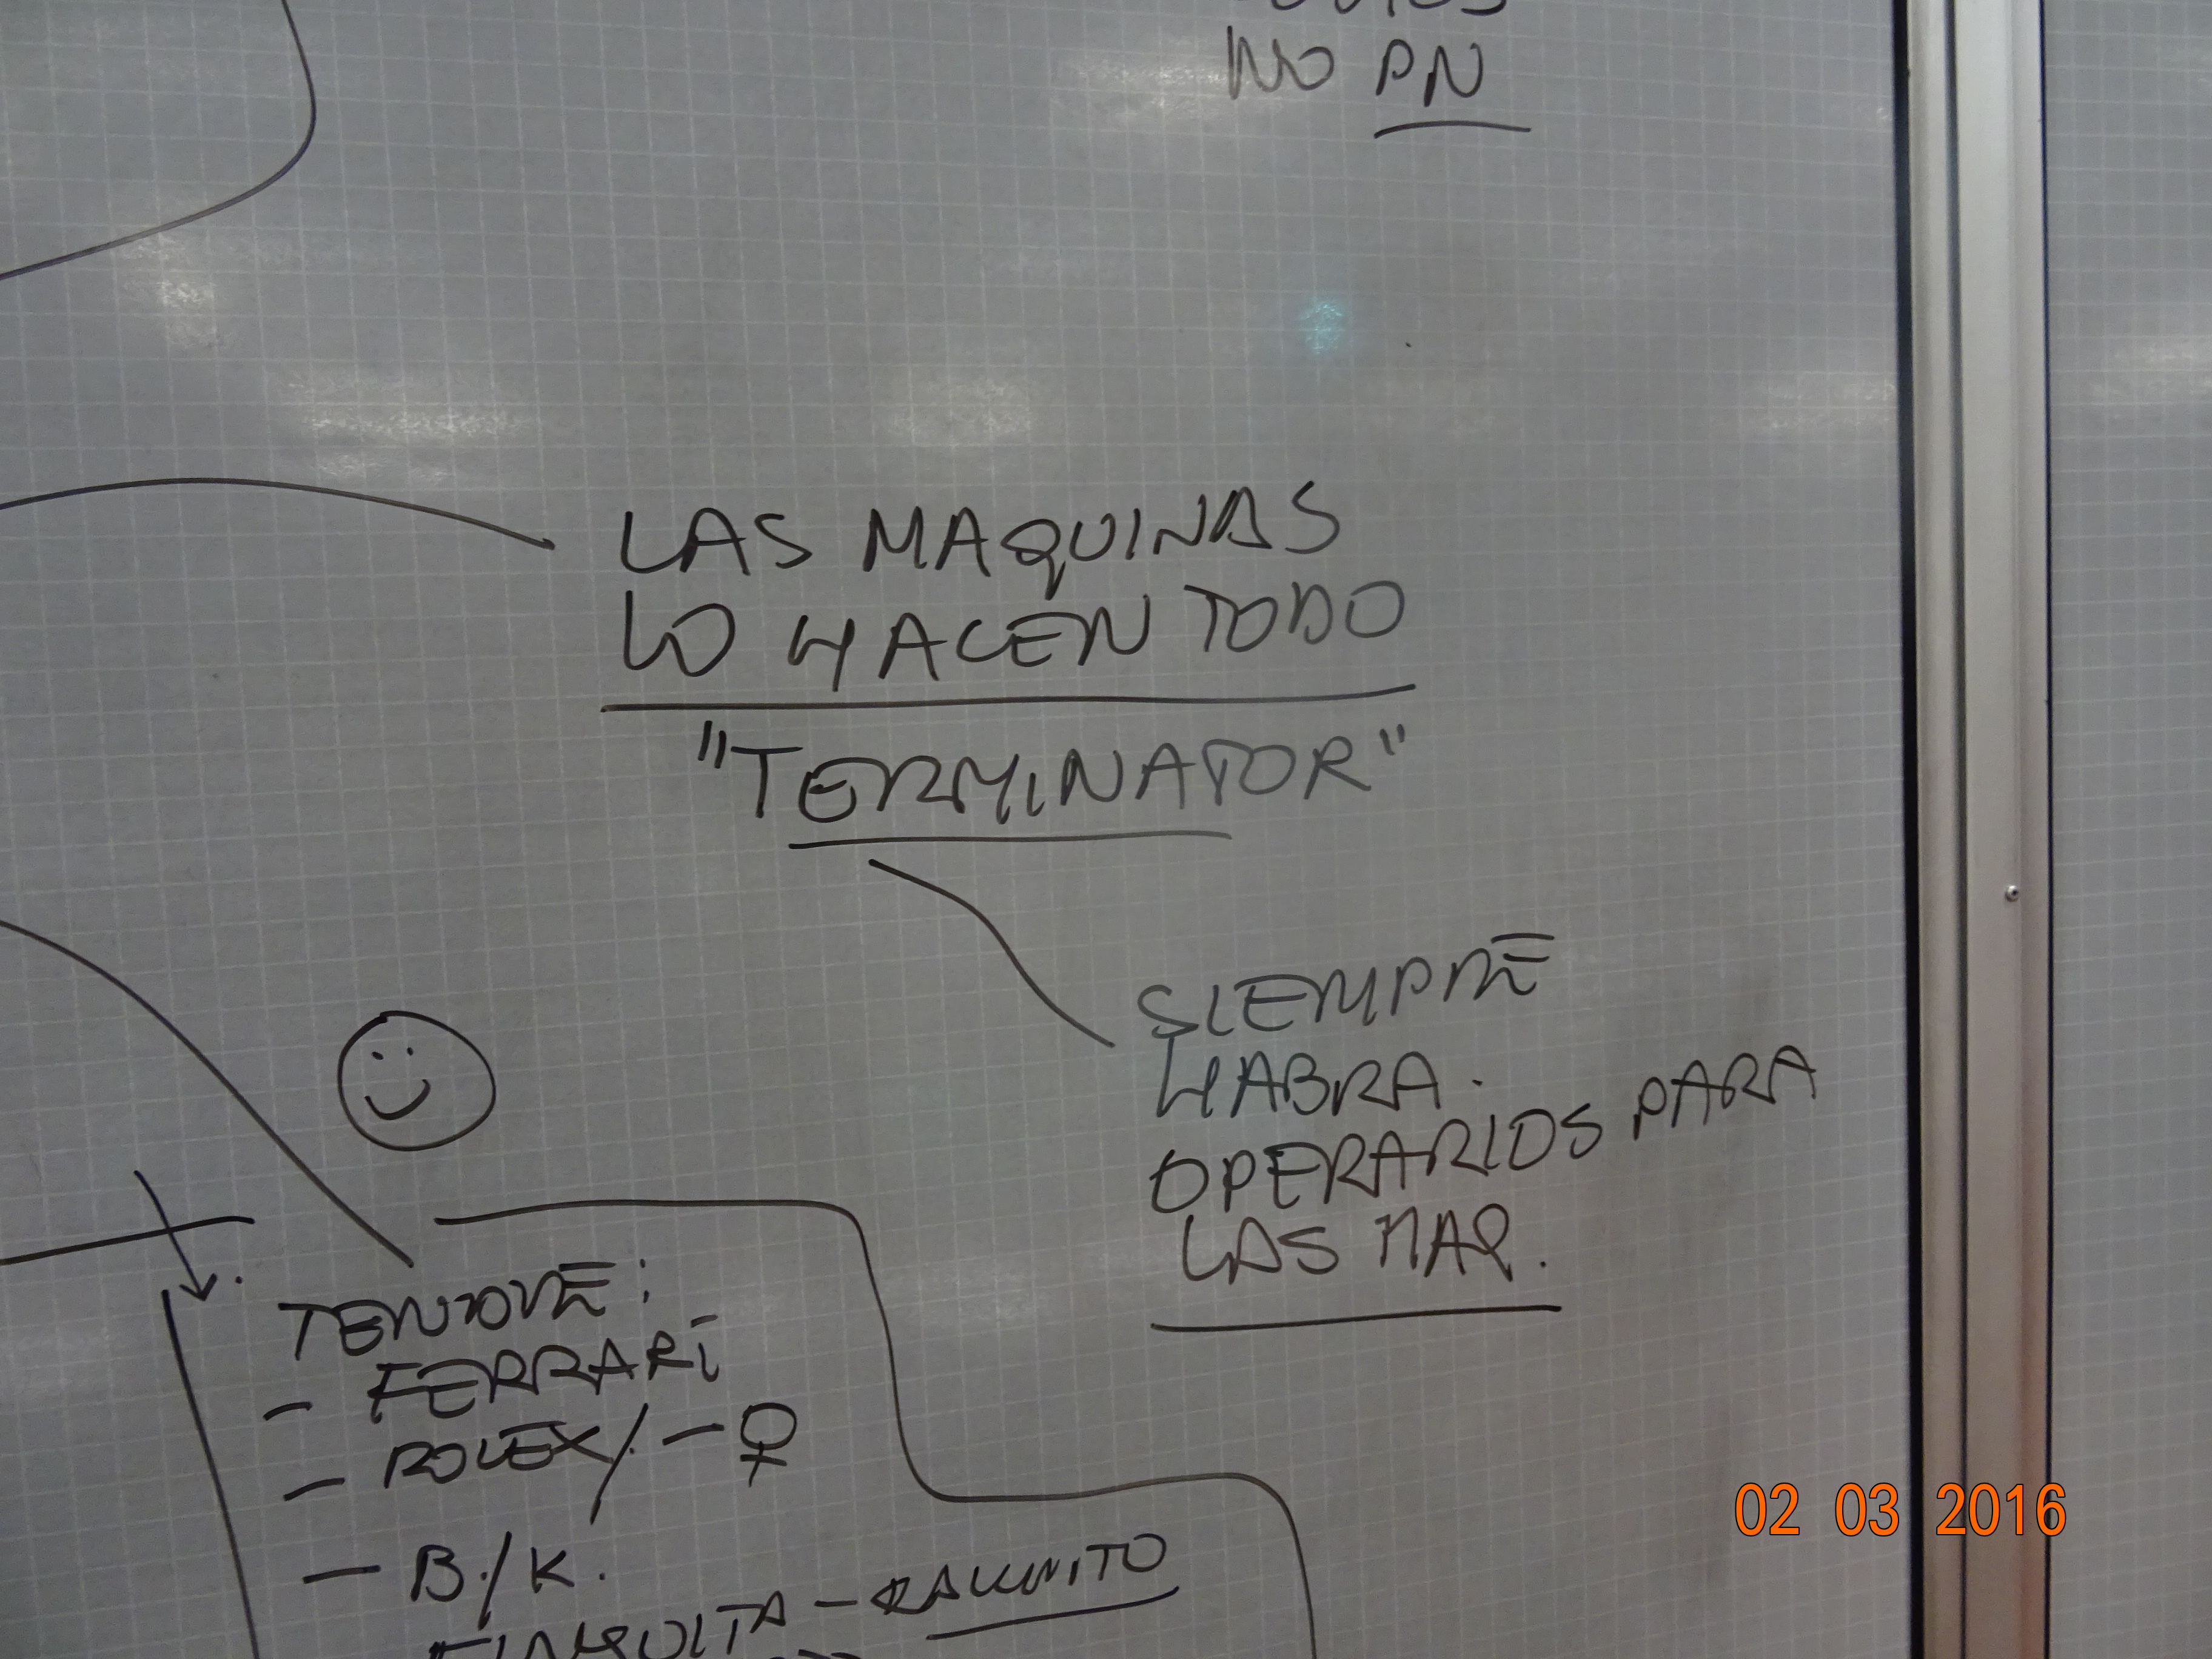 NO PN
LAS MAQUINAS
LO HACEN TODO
"TERMINATOR"
SIEMPRE
HABRA.
OPERARIOS PARA
LAS MAQ.
TENDRE:
- FERRARI
- ROLEX/. - ♀
- B./K.
- RALUNITO
02 03 2016